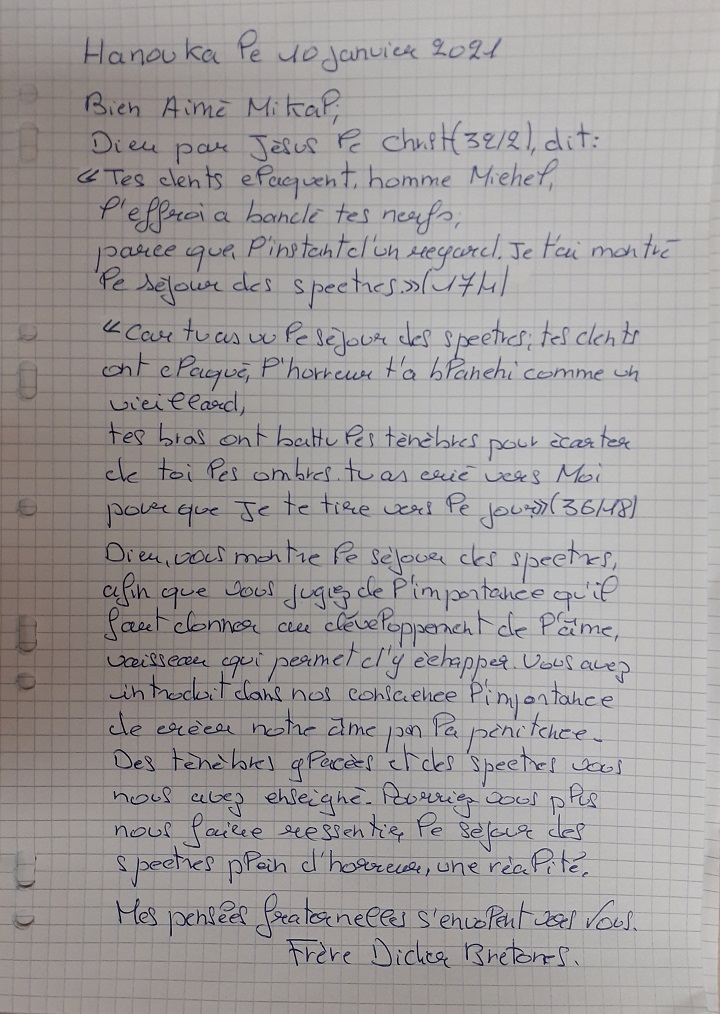 Hanouka le 10 janvier 2021
Bien Aimé Mikal,
Dieu par Jésus le Christ (32/2), dit:
« Tes dents claquent, homme Michel,
l'effroi a bandé tes nerfs,
parce que, l'instant d'un regard, Je t'ai montré
le séjour des spectres » (17/1)
« Car tu as vu le séjour des spectres; tes dents
ont claqué, l'horreur t'a blanchi comme un
vieillard,
tes bras ont battu les ténèbres pour écarter
de toi les ombres. tu as crié vers Moi
pour que Je te tire vers le jour » (36/18)
Dieu, vous montre le séjour des spectres,
afin que vous jugiez de l'importance qu'il
faut donner au développement de l'âme,
vaisseau qui permet d'y échapper. Vous avez
introduit dans nos conscience l'importance
de créer notre âme par la pénitence.
Des ténèbres glacées et des spectres vous
nous avez enseigné. Pourriez vous plus
nous faire ressentir, le séjour des
spectres plein d'horreur, une réalité.
Mes pensées fraternelles s'envolent vers Vous.
Frère Didier Bretones.